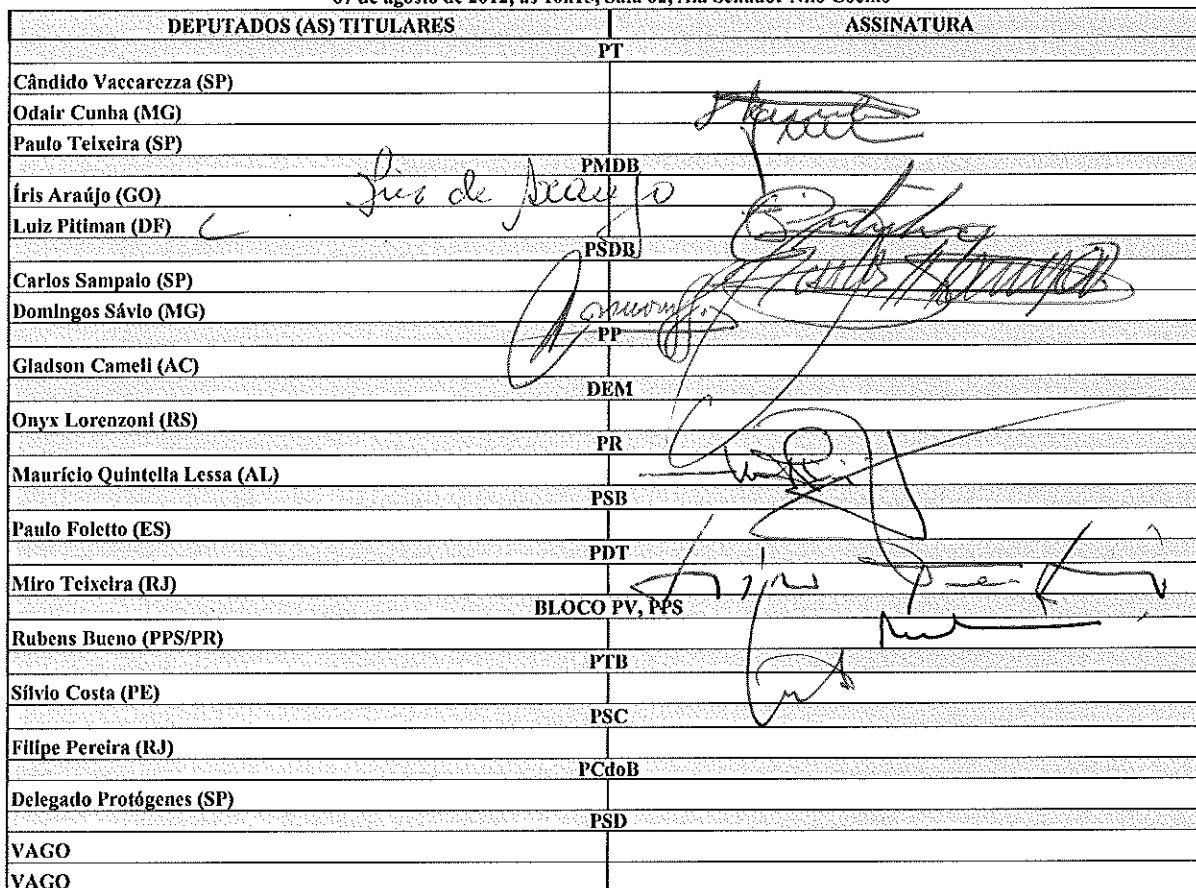 07 de agosto de 2012, às 10h15, Sala 02, Ala Senador Nilo Coelho
DEPUTADOS (AS) TITULARES ASSINATURA
PT
Cândido Vaccarezza (SP)
Odair Cunha (MG)
Paulo Teixeira (SP)
PMDB
Íris Araújo (GO) Íris de Araújo
Luiz Pitiman (DF)
PSDB
Carlos Sampaio (SP) Carlos Sampaio
Domingos Sávio (MG)
PP
Gladson Cameli (AC)
DEM
Onyx Lorenzoni (RS)
PR
Maurício Quintella Lessa (AL)
PSB
Paulo Foletto (ES)
PDT
Miro Teixeira (RJ)
BLOCO PV, PPS
Rubens Bueno (PPS/PR)
PTB
Sílvio Costa (PE)
PSC
Filipe Pereira (RJ)
PCdoB
Delegado Protógenes (SP)
PSD
VAGO
VAGO